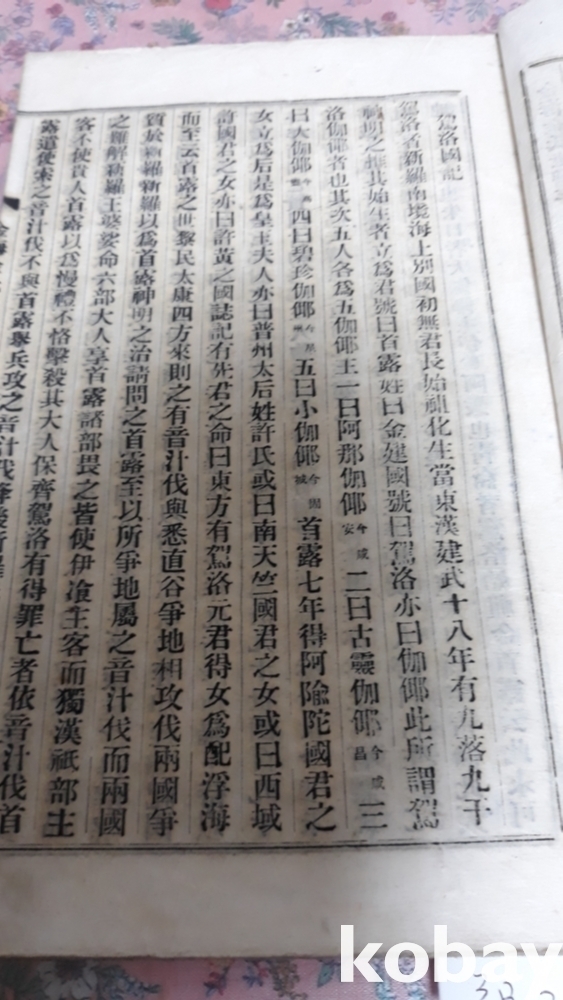 駕洛國記
駕洛者新羅南境海上別國初無君長始禎化生當東漢建武十八年有九落九干
之 其始生者立爲君號曰首露姓曰金建國號曰駕洛亦曰伽倻此所謂駕
洛伽倻者也其次五人各爲五伽倻王一曰阿那伽倻今咸安二曰古靈伽倻今咸昌三
曰大伽倻 四曰碧珍伽倻 五曰小伽倻今固城首露七年得阿隃陀國君之
女立爲后是爲皇主夫人亦曰普州太后姓許氏或曰南天竺國君之女或曰西域
許國君之女亦曰許黃之國誌記有先君之命曰東方有駕洛元君得女爲配浮海
而至云首露之世黎民太康四方來則之有音汁伐與悉直谷爭地相攻伐兩國爭
質於新羅新羅以爲首露神明之治請問之首露至以所爭地屬之音汁伐而兩國
之難解新羅王婆娑命六部大人享首露諸部畏之皆使伊飡主客而獨漢祇部主
客不使貴人首露以爲慢禮不恪擊殺其大人保齊駕洛有得罪亡者依音汁伐首
露道使索之音汁伐不與首露擧兵攻之音汁伐降
kobay
30